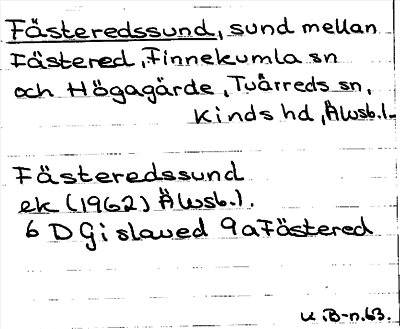 Fästeredssund, sund mellan
Fästered, Finnekumla sn
och Högagärde, Tvärreds sn,
Kinds hd, Älvsb.l.
Fästeredssund
ek (1962) Älvsb.l.
6 D Gislaved 9a Fästered
u.B-n.63.